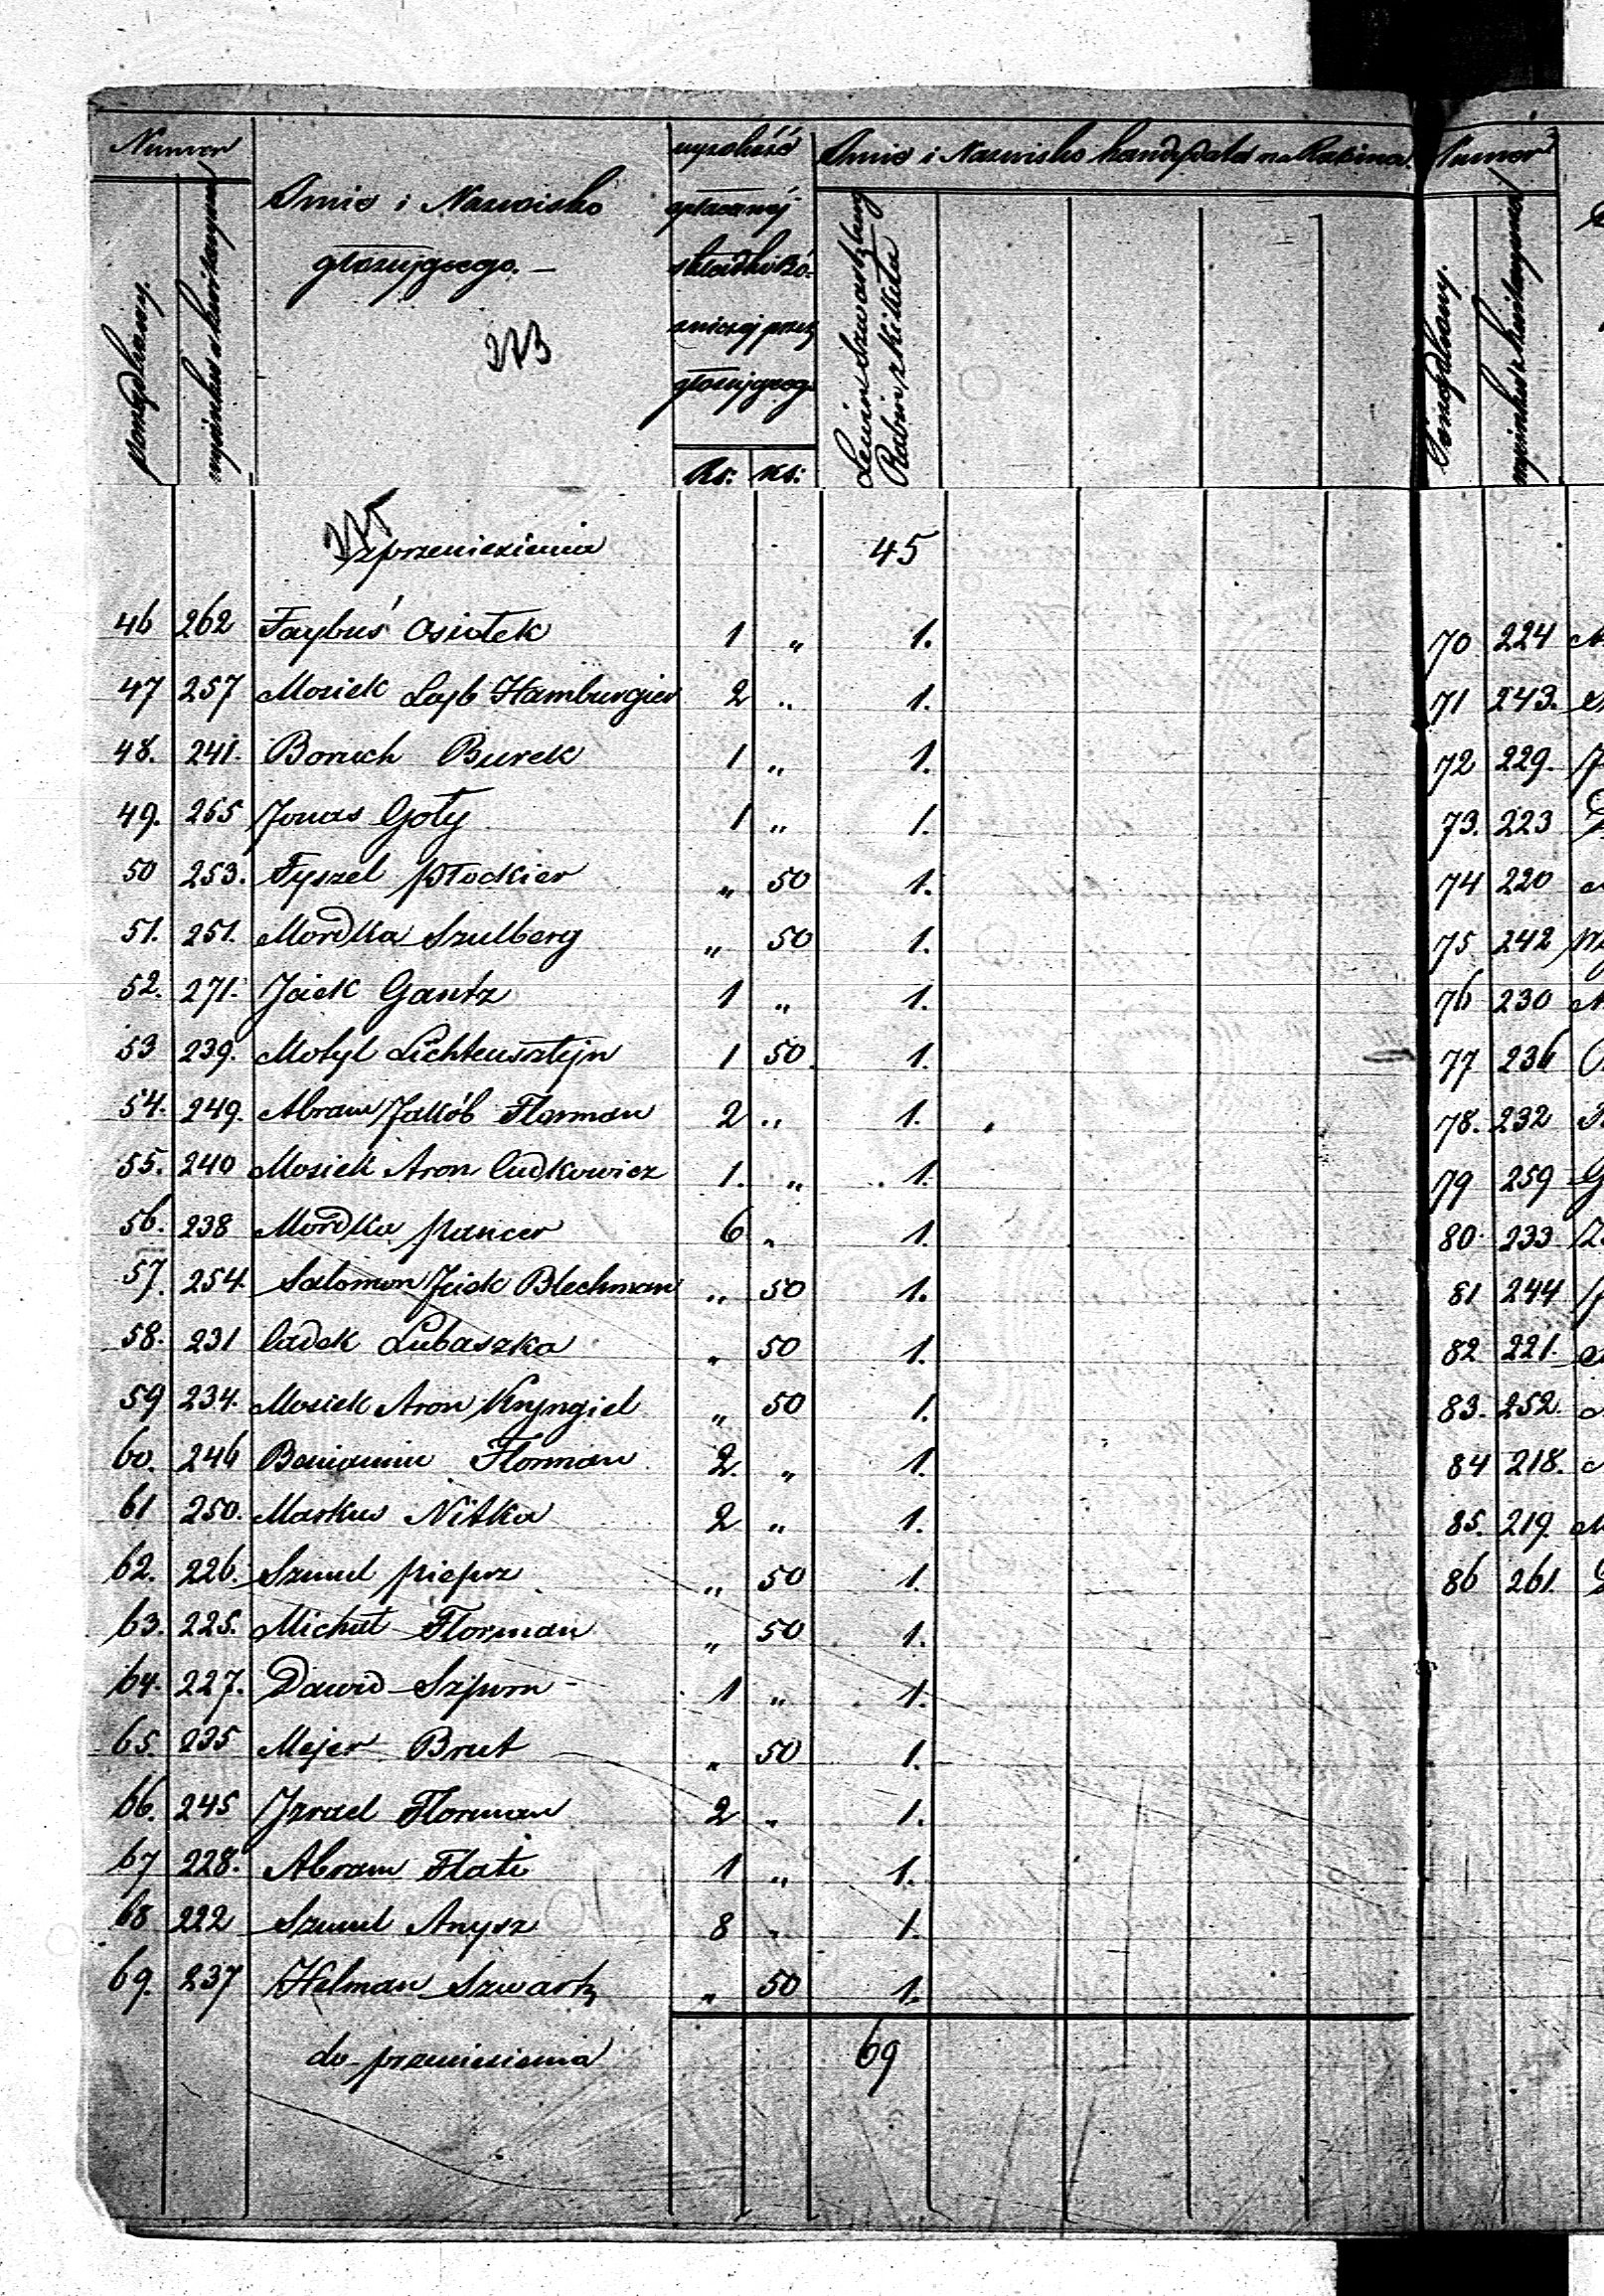 Numer
Imie i Nazwisko
głosującego. —
wysokość
opłacanéj
składki bó-
zniczej przez
głosującego
Imie i Nazwisko kandydata na Rabina.
porządkowy.
Rs: ks:
Lewin Szwartzberg
Rabin z
273
275
z przeniesienia 45
46 262 Faybuś Osiołek 1 „ 1.
47 257 Mosiek Lajb Hamburgier 2 „ 1.
48. 241. Boruch Burek 1 „ 1.
49. 265 Jonas Goły 1 „ 1.
50 253. Fyszel Płockier „ 50 1.
51. 251. Mordka Szulberg „ 50 1.
52. 271. Jcick Gantz 1 „ 1.
53 239. Motyl Lichtensztejn 1 50 1.
54. 249. Abram Jakób Florman 2 „ 1.
55. 240 Mosiek Aron Cudkowicz 1. „ 1.
56. 238 Mordka Pancer 6 „ 1.
57. 254 Salomon Jcick Blechman „ 50 1.
58. 231 Cadek Lubaszka „ 50 1.
59 234. Mosiek Aron Kryngiel „ 50 1.
60. 246 Beniamin Florman 2. „ 1.
61 250. Markus Nitka 2 „ 1.
62. 226. Szmul Pieprz „ 50 1.
63. 225. Michał Florman „ 50 1.
64. 227. Dawid Szpurn 1 „ 1.
65. 235 Mejer Brut „ 50 1.
66. 245 Jzrael Florman 2 „ 1.
67 228. Abram Flato 1 „ 1.
68 222 Szmul Anysz 8 „ 1.
69. 237 Helman Szwartz „ 50 1.
do przeniesienia 69
Numer
Porządkowy.
70 224
71 243.
72 229.
73. 223
74 220
75 242
76 230
77 236
78. 232
79 259
80. 233
81 244
82 221.
83. 252.
84 218.
85. 219.
86 261.